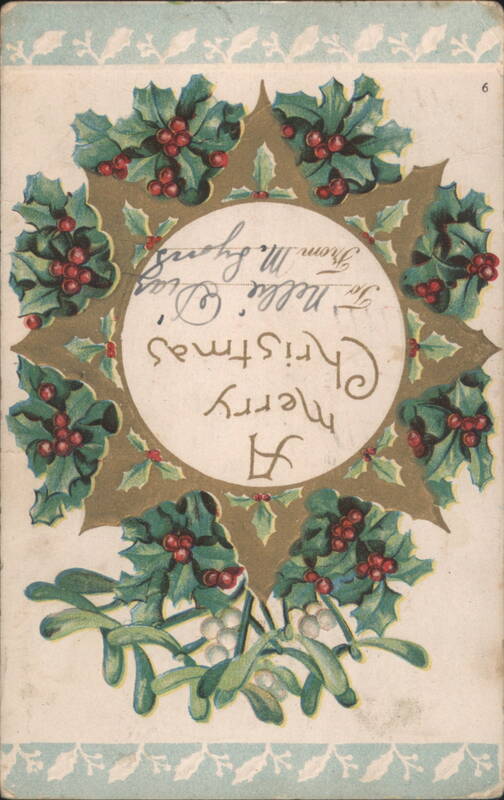 A
Merry
Christmas
To Nellie
From M. Lyons
6